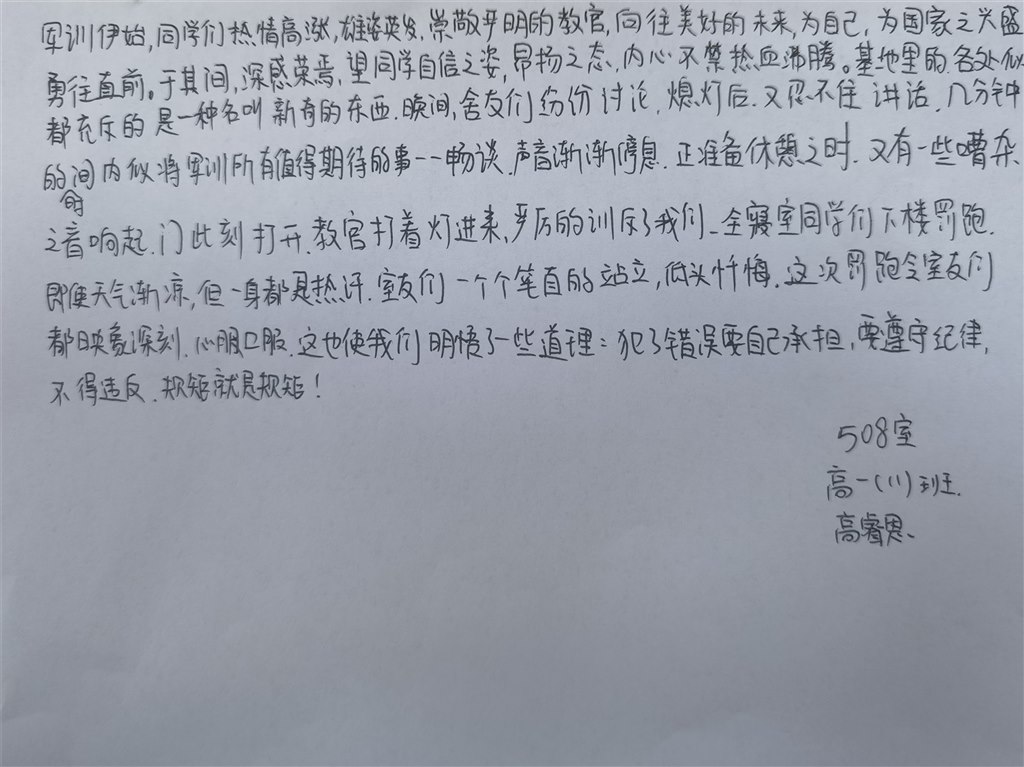 军训伊始,同学们热情高涨,雄姿英发,崇敬开明的教官,向往美好的未来,为自己,为国家之兴盛
勇往直前。于其间,深感荣焉,望同学自信之姿,昂扬之态,内心不禁热血沸腾。基地里的各处似
都充斥的是一种名叫新奇的东西.晚间,舍友们纷纷讨论,熄灯后.又忍不住讲话.几分钟
的间内似将军训所有值得期待的事一一畅谈.声音渐渐停息.正准备休憩之时.又有一些嘈杂
时
之音响起.门此刻打开.教官打着灯进来,严厉的训斥了我们.全寝室同学们下楼罚跑.
即使天气渐凉,但一身都是热汗.室友们一个个笔直的站立,低头忏悔.这次罚跑令室友们
都映象深刻.心服口服.这也使我们明悟了一些道理:犯了错误要自己承担,要遵守纪律,
不得违反.规矩就是规矩!
508室
高一(11)班.
高睿思.